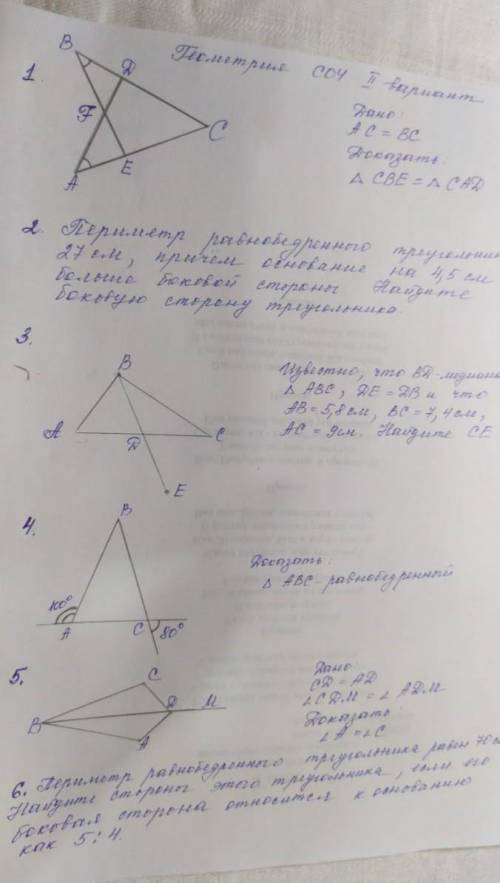 Геометрия СОЧ II вариант
1
B
D
F
C
A
E
Дано:
AC = BC
Доказать:
△ CBE = △ CAD
2. Периметр равнобедренного треугольни
27 см, причем основание на 4,5 см
больше боковой стороны. Найдите
боковую сторону треугольника.
3.
B
A
D
C
E
Известно, что BD - медиана
△ ABC, DE = DB и что
AB = 5,8 см, BC = 7,4 см,
AC = 9 см. Найдите CE
4.
B
100°
A
C
80°
Доказать:
△ ABC - равнобедренный
5.
C
D
M
B
A
Дано
CD = AD
∠CDM = ∠ADM
Доказать:
∠A = ∠C
6. Периметр равнобедренного треугольника равен 70 см
Найдите стороны этого треугольника, если его
боковая сторона относится к основанию
как 5:4.